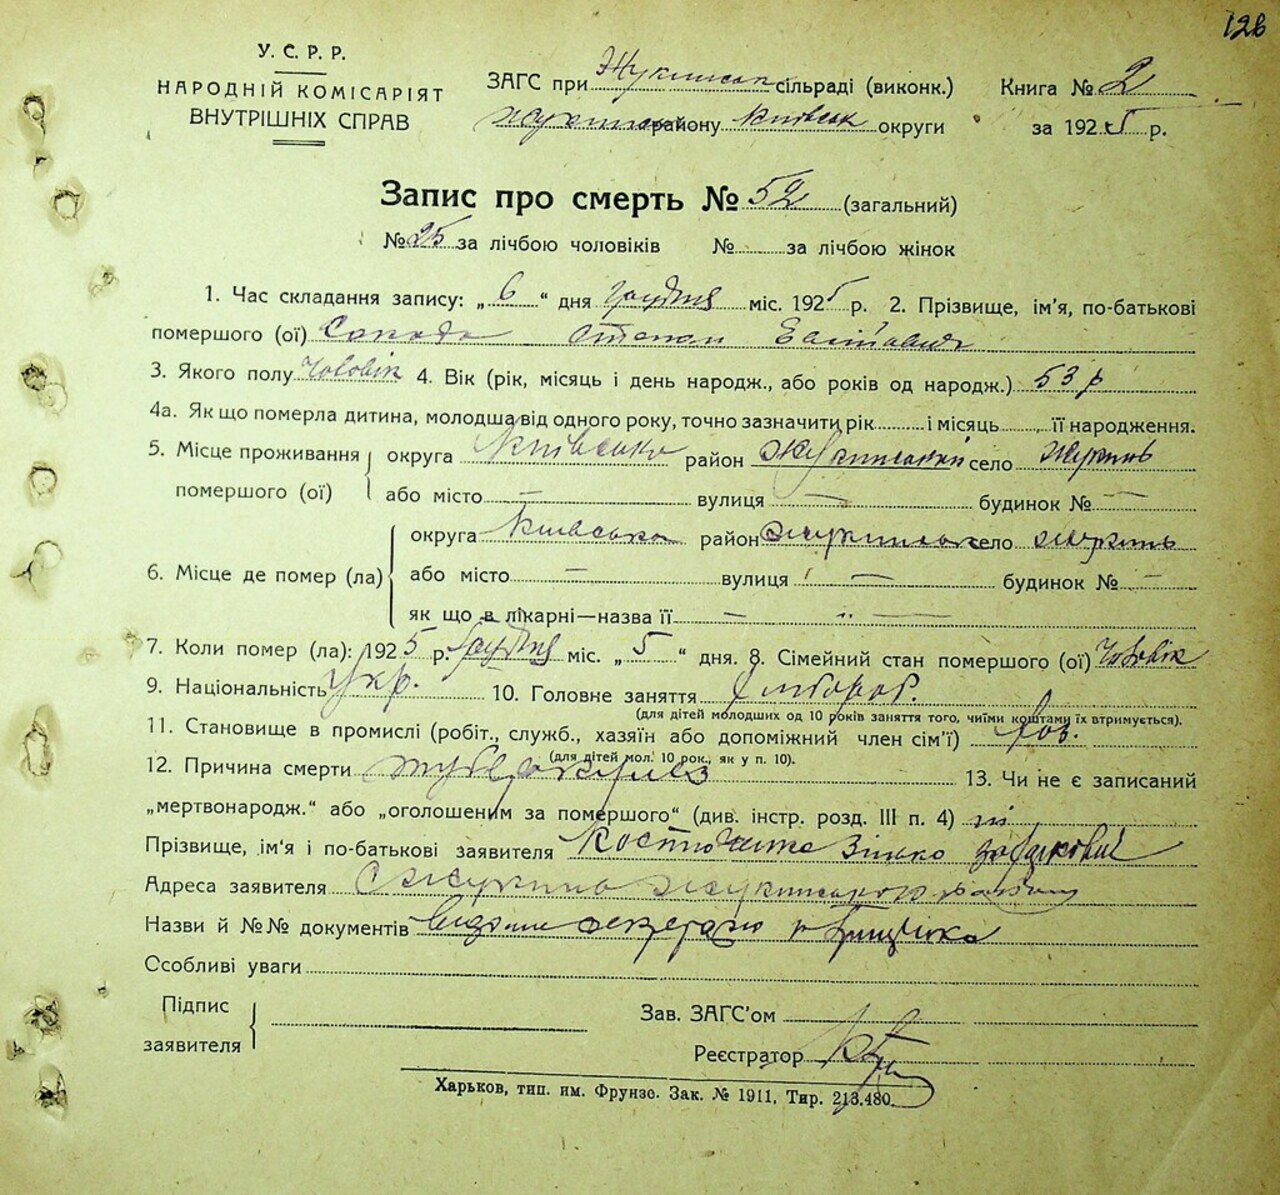 126
У.С.Р.Р.
НАРОДНІЙ КОМІСАРІЯТ
ВНУТРІШНІХ СПРАВ
ЗАГС при сільраді (виконк.) Книга № 2
району Київськ округи за 1925 р.
Запис про смерть № 52 (загальний)
№ 25 за лічбою чоловіків № за лічбою жінок
1. Час складання запису: „ 6 “ дня грудня міс. 1925 р. 2. Прізвище, ім'я, по-батькові
помершого (ої) Степан
3. Якого полу Чоловік 4. Вік (рік, місяць і день народж., або років од народж.) 53 р
4а. Як що померла дитина, молодша від одного року, точно зазначити рік і місяць її народження.
5. Місце проживання округа Київська район Жукинський село Жукинь
помершого (ої) або місто — вулиця — будинок № —
6. Місце де помер (ла) округа Київська район село Жукинь
або місто — вулиця — будинок № —
як що в лікарні—назва її — „ —
7. Коли помер (ла): 1925 р. грудня міс. „ 5 “ дня. 8. Сімейний стан помершого (ої) Чоловік
9. Національність Укр. 10. Головне заняття
(для дітей молодших од 10 років заняття того, чиїми коштами їх втримується).
11. Становище в промислі (робіт., служб., хазяїн або допоміжний член сім'ї)
(для дітей мол. 10 рок., як у п. 10).
12. Причина смерти туберкульоз 13. Чи не є записаний
„мертвонародж.“ або „оголошеним за помершого“ (див. інстр. розд. III п. 4) ні
Прізвище, ім'я і по-батькові заявителя
Адреса заявителя
Назви й №№ документів секретарю
Особливі уваги
Підпис
заявителя
Зав. ЗАГС'ом
Реєстратор
Харьков, тип. им. Фрунзе. Зак. № 1911, Тир. 213.480.